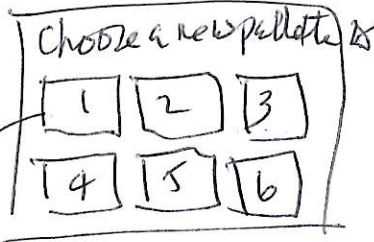 Choose a new pallette
1 2 3
4 5 6